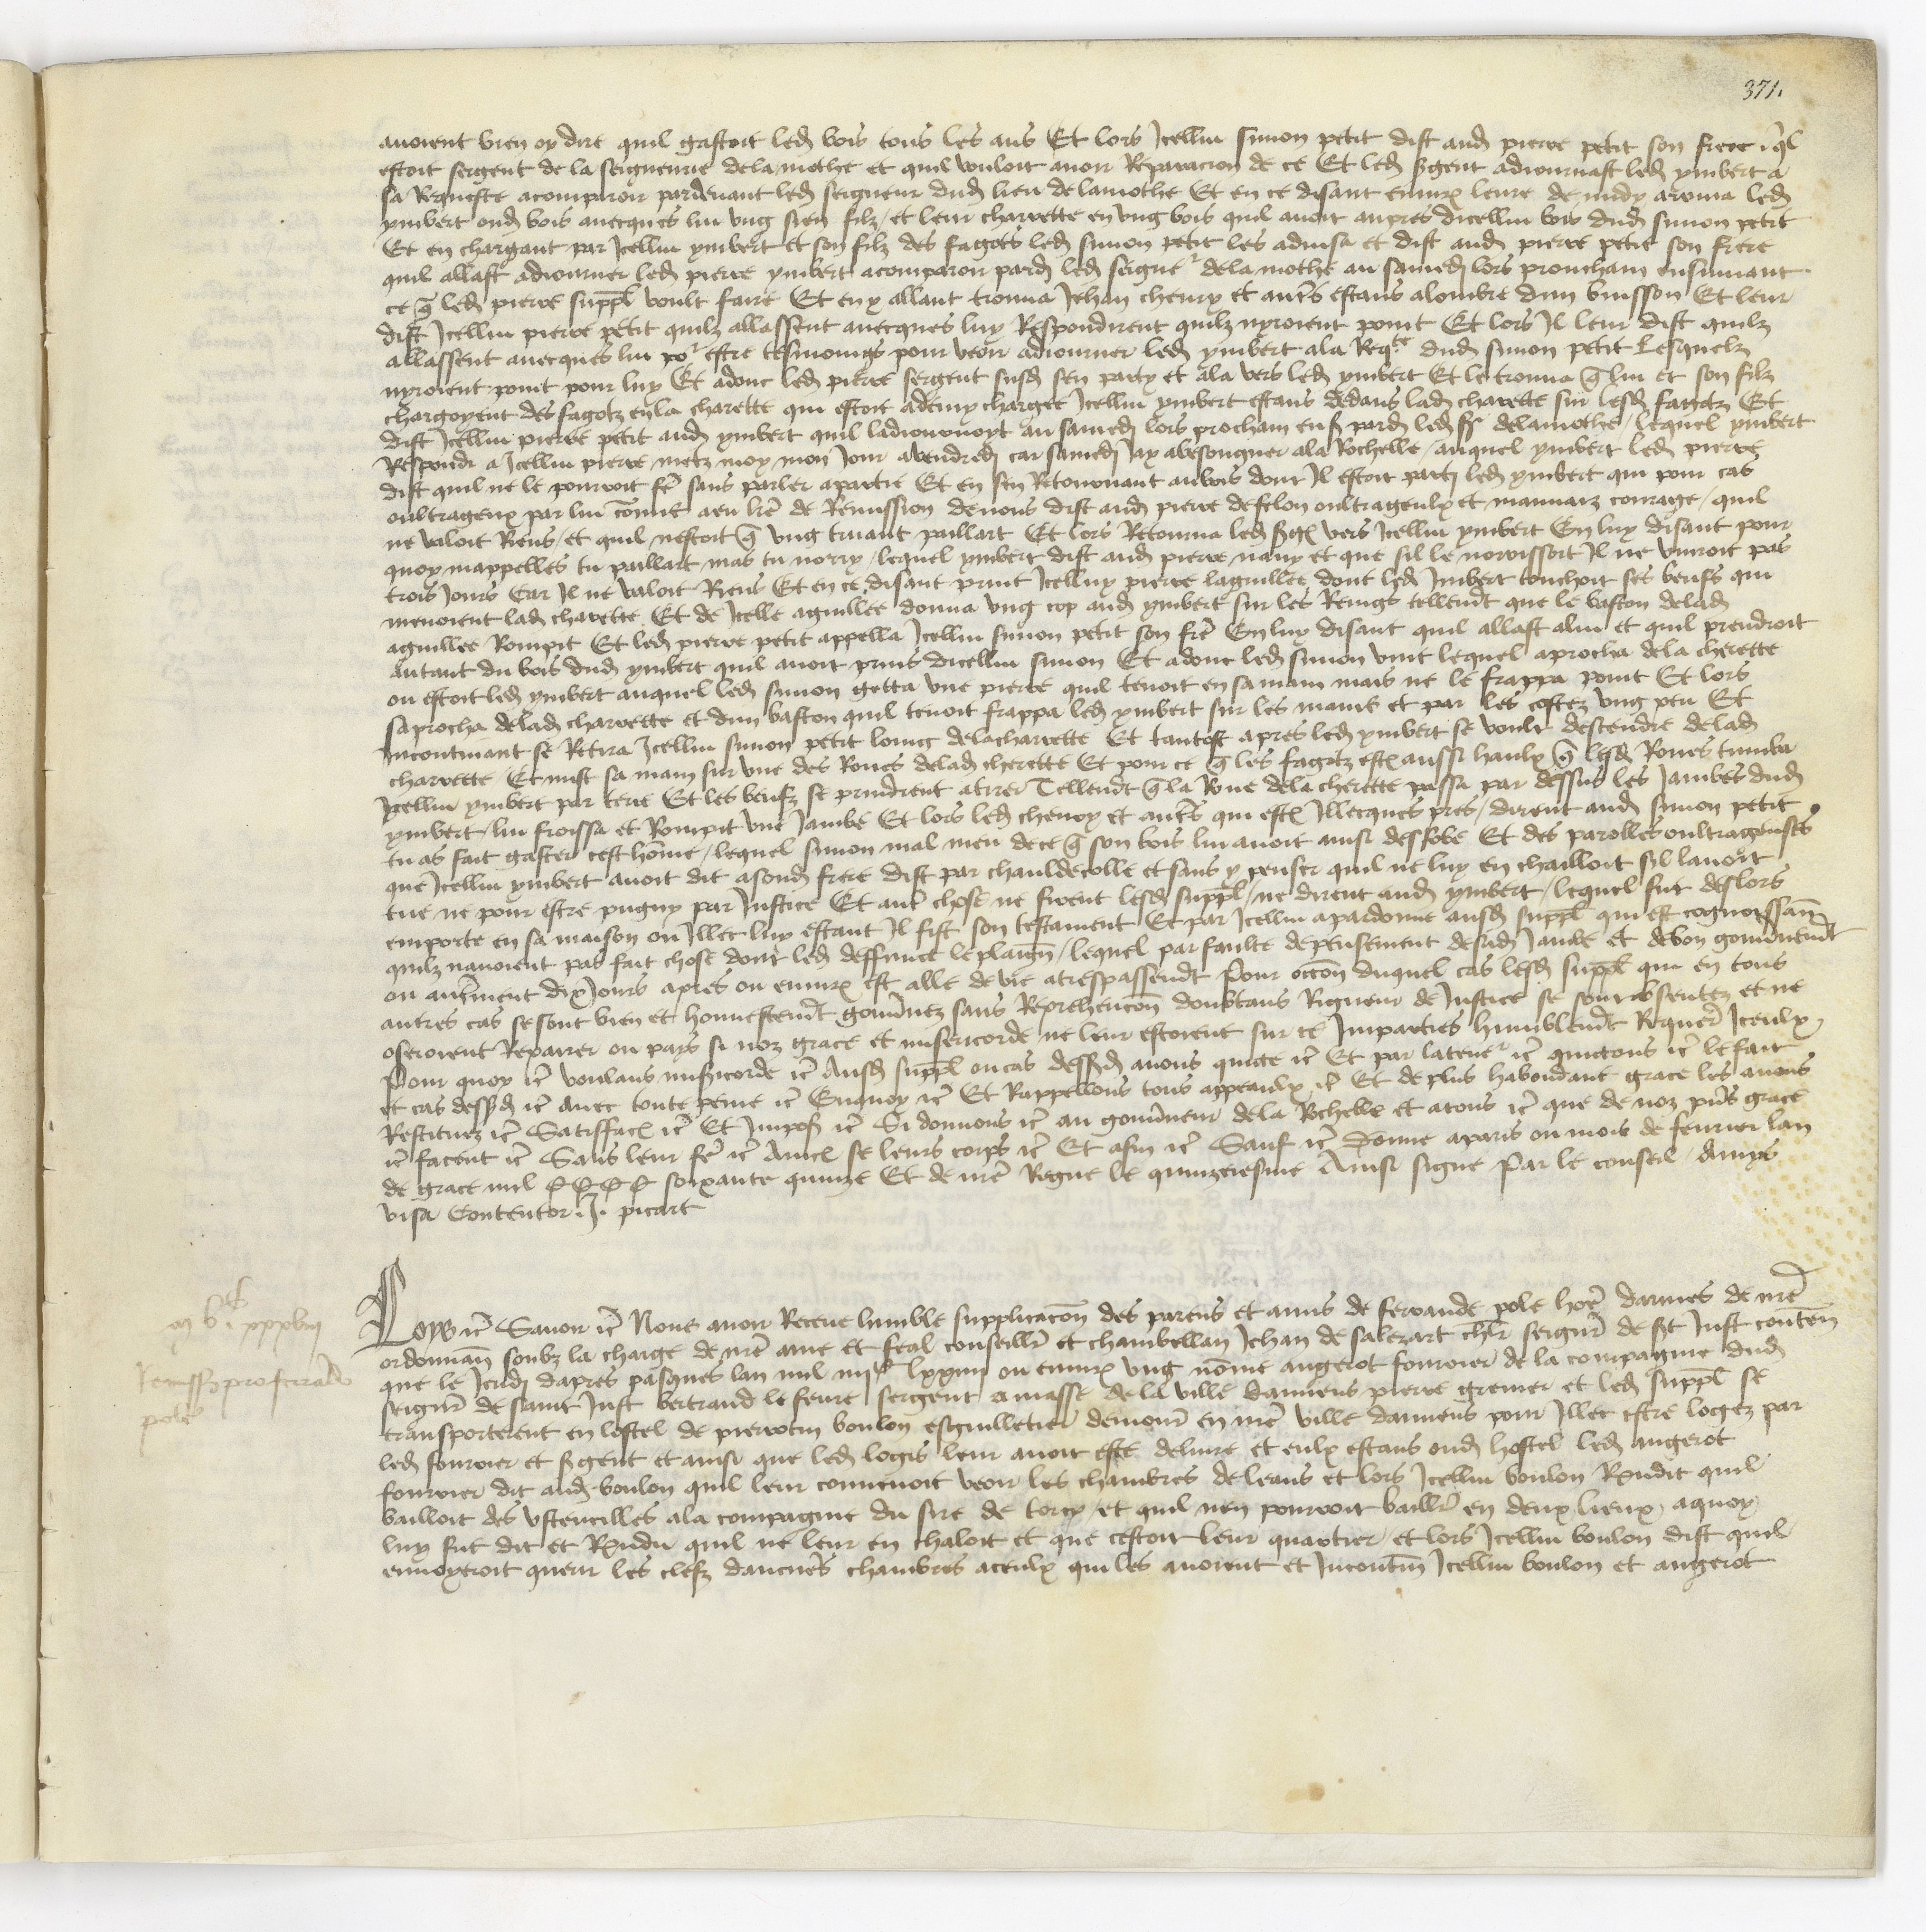 371.
avoient bien oy dire quil gastoit led bois tous les ans Et lors Icellui simon petit dist aud pierre petit son frere
estoit sergent de la seigneurie dela mothe et quil vouloit avoir Reparacion de ce Et led sgent adiournast led ymbert a
sa Requeste acomparoir pardevant led seigneur dud lieu delamothe Et en ce disant environ leure de midy arriva led
ymbert oud bois avecques lui ung sien filz et leur charrette en ung bois quil avoit aupres dicellui bois dud simon petit
Et en chargant par Icellui ymbert et son filz des fagots led simon petit les advisa et dist aud pierre petit son frere
quil allast adiourner led pierre ymbert acomparoir pard led seigneur dela mothe au samedi lors prouchain ensuivant
ce que led pierre suppl voult faire Et en y allant trouva Jehan chevry et autres estans alombre dun buisson Et leur
dist Icellui pierre petit quilz allassent avecques luy Respondirent quilz nyroient point Et lors Il leur dist quilz
allassent avecques lui po estre tesmoings pour veoir adiourner led ymbert ala Reqte dud simon petit Lesquelz
nyroient point pour luy Et adonc led pierre sergent susd sen party et ala vers led ymbert Et le trouva que lui et son filz
chargoyent des fagotz en la charette qui estoit ademy chargee Icellui ymbert estans dedans lad charrette sur lesd fagotz Et
dist Icellui pierre petit aud ymbert quil ladiournoyt au samedi lors prochain ens pard led sr delamothe / lequel ymbert
Respondi a Icellui pierre metz moy mon Jour avendredi car samedi Jay abesongner ala Rochelle / auquel ymbert led pierre
dist quil ne le pourroit fe sans parler apartie Et en sen Retournant aubois dont Il estoit parti led ymbert qui pour cas
oultrageux par lui comme aeu lre de Remission de nous dist aud pierre de felon oultrageulx et mauvaiz courage / quil
ne valoit Riens / et quil nestoit que ung truant paillart Et lors Retourna led sgt vers Icellui ymbert En luy disant pour
quoy mappelles tu paillart mas tu norry / lequel ymbert dist aud pierre nany et que sil le norrissoit Il ne vivroit pas
trois Jours Car Il ne valoit Riens Et en ce disant print Icelluy pierre laguillee dont led Imbert touchoit ses beufs qui
menoient lad charrette Et de Icelle aguillee donna ung cop aud ymbert sur les Reings tellemt que le baston delad
aguillee Rompit Et led pierre petit appella Icellui simon petit son fre En luy disant quil allast alui et quil prendroit
autant du bois dud ymbert quil avoit prins dicellui simon Et adonc led simon vint lequel aprocha dela cherette
ou estoit led ymbert auquel led simon getta une pierre quil tenoit en sa main mais ne le frappa point Et lors
saprocha delad charrette et dun baston quil tenoit frappa led ymbert sur les mains et par les costez ung peu Et
incontinant se Retira Icellui simon petit loing delacharrette Et tantost apres led ymbert se voult descendre delad
charrette Et mist sa main sur une des Roues delad cherette Et pour ce que les fagotz est aussi haulx que lesd Roues tumba
Icellui ymbert par terre Et les beufz se prindrent atirer Tellemt que la Roue dela cherette passa par dessus les Jambes dud
ymbert / lui froissa et Rompit une Jambe Et lors led chevry et autres qui est Illecques pres / dirent aud simon petit
tu as fait gaster cest homme / lequel simon mal meu de ce que son bois lui avoit ainsi desrobe Et des parolles oultrageuses
que Icellui ymbert avoit dit asond frere dist par chauldecolle et sans y penser quil ne luy en chailloit sil lavoit
tue ne pour estre pugny par Justice Et autre chose ne firent lesd suppl / ne dirent aud ymbert / lequel fut deslors
emporte en sa maison ou Illec luy estant Il fist son testament Et par Icellui apardonne ausd suppl qui est cognoissan
quilz navoient pas fait chose dont led deffunct le plaign / lequel par faulte de pensement desad Jambe et de bon gouvernemt
ou autrement dix Jours apres ou environ est alle de vie atrespassemt Pour occon duquel cas lesd suppl qui en tous
autres cas se sont bien et honnestemt gouvernez sans Reprehencon doubtans Rigueur de Justice se sont absentez et ne
oseroient Reparer ou pays si noz grace et misericorde ne leur estoient sur ce Imparties humblemt Requer Iceulx
Pour quoy ic voulans misicorde ic Ausd suppl ou cas dessusd avons quicte ic Et par lateneur ic quictons ic le fait
et cas dessusd ic avec toute peine ic Enquoy ic Et Rappellons tous appeaulx ic Et de plus habondant grace les avons
Restituez ic Satisfact ic Et Impos ic Si donnons ic au gouverneur dela Rochelle et atous ic que de noz pns grace
ic facent ic Sans leur fe ic Aincs se leurs corps ic Et afin ic Sauf ic Donne aparis ou mois de fevrier lan
de grace mil CCCC soixante quinze Et de nre Regne le quinzeiesme Ainsi signe Par le conseil / Amys
visa Contentor . J . picart
Remiss pro ferrando
pole
Loys ic Savoir ic Nous avoir Receue humble supplicacon des parens et amis de ferrande pole hoe darmes de nre
ordonnan soubz la charge de nre ame et feal conseiller et chambellan Jehan de salezart chlr seigneur de st Just conten
que le Jeudi dapres pasques lan mil iiiic lxxiiii ou environ ung nomme angerot fourrier de la compaignie dud
seigneur de saint Just bertrand le feure sergent a masse de la ville damiens pierre grenier et led suppl se
transporterent en lostel de pierrotin boulon esguilletier demour en nre ville damiens pour Illec estre logez par
led fourrier et sgent et ainsi que led logis leur avoit este delivre et eulx estans oud hostel led angerot
fourrier dit aud boulon quil leur convenoit veoir les chambres de leans et lors Icellui boulon Rndit quil
bailloit des ustencilles ala compaignie du sire de torcy / et quil nen pourroit bailler en deux lieux / aquoy
luy fut dit et Rndu quil ne leur en chaloit et que cestoit leur quartier / et lors Icellui boulon dist quil
envoyeroit querir les clefz daucunes chambres aceulx qui les avoient et Incontin Icellui boulon et angerot